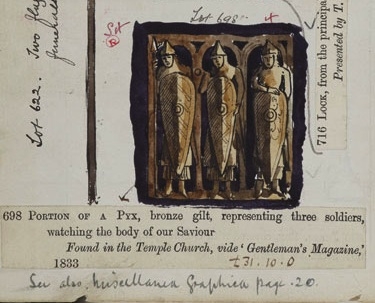 Lot 698
Lot 622. Two
716 LOCK, from the principa
Presented by T.
698 PORTION OF A PYX, bronze gilt, representing three soldiers,
watching the body of our Saviour
Found in the Temple Church, vide 'Gentleman's Magazine,'
1833
£31.10.0
See also, Miscellanea Graphica page 20.